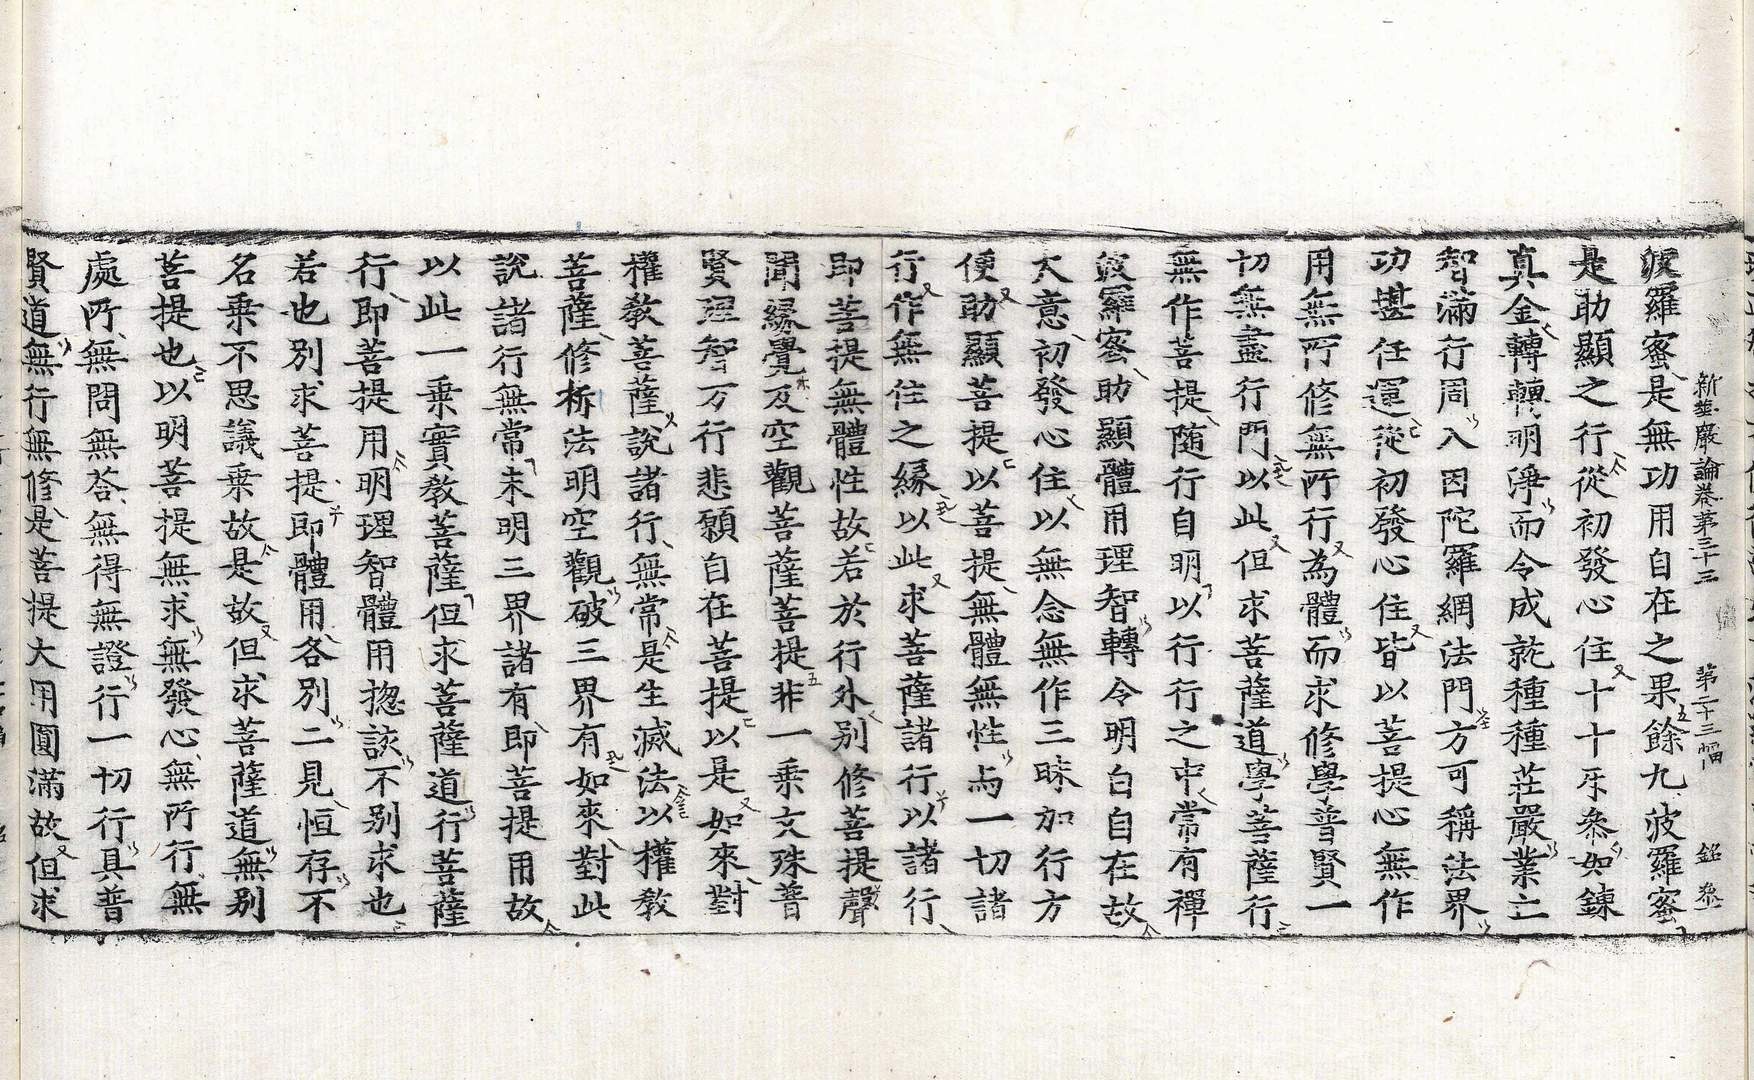 新華嚴論卷第三十三 第二十三幅 銘 叅
波羅蜜是無功用自在之果餘九波羅蜜
是助顯之行從初發心住十十牙叅如鍊
真金轉轉明淨而令成就種種莊嚴業亡
智滿行周入因陀羅網法門方可稱法界
功甚任運從初發心住皆以菩提心無作
用無所修無所行為體而求修學普賢一
切無盡行門以此但求菩薩道學菩薩行
無作菩提随行自明以行行之中常有禪
波羅蜜助顯體用理智轉令明白自在故
大意初發心住以無念無作三昧加行方
便助顯菩提以菩提無體無性与一切諸
行作無住之緣以此求菩薩諸行以諸行
即菩提無體性故若於行外別修菩提聲
聞緣覺及空觀菩薩菩提非一乘文殊普
賢理智万行悲願自在菩提以是如來對
權教菩薩說諸行無常是生滅法以權教
菩薩修析法明空觀破三界有如來對此
說諸行無常未明三界諸有即菩提用故
以此一乘實教菩薩但求菩薩道行菩薩
行即菩提用明理智體用揔該不别求也
若也別求菩提即體用各別二見恒存不
名乘不思議乘故是故但求菩薩道無別
菩提也以明菩提無求無發心無所行無
處所無問無荅無得無證行一切行具普
賢道無行無修是菩提大用圓滿故但求